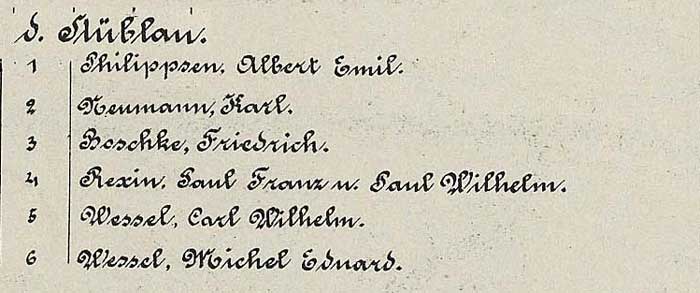 d. Stüblau.
1 Philippsen, Albert Emil.
2 Neumann, Karl.
3 Boschke, Friedrich.
4 Rexin, Paul Franz u. Paul Wilhelm.
5 Wessel, Carl Wilhelm.
6 Wessel, Michel Eduard.